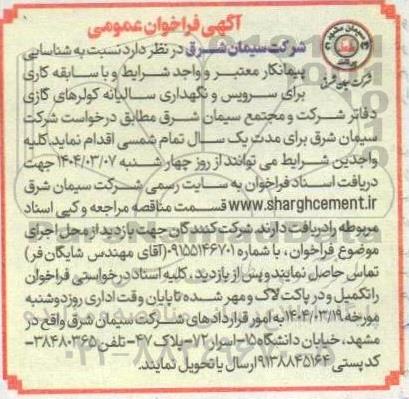 آگهی فراخوان عمومی
شرکت سیمان شرق در نظر دارد نسبت به شناسایی
پیمانکار معتبر و واجد شرایط و با سابقه کاری
برای سرویس و نگهداری سالیانه کولرهای گازی
دفاتر شرکت و مجتمع سیمان شرق مطابق درخواست شرکت
سیمان شرق برای مدت یک سال تمام شمسی اقدام نماید. کلیه
واجدین شرایط می توانند از روز چهار شنبه ۱۴۰۴/۰۳/۰۷ جهت
دریافت اسناد فراخوان به سایت رسمی شرکت سیمان شرق
www.sharghcement.ir قسمت مناقصه مراجعه و کپی اسناد
مربوطه را دریافت دارند. شرکت کنندگان جهت بازدید از محل اجرای
موضوع فراخوان ، با شماره ۰۹۱۵۵۱۴۶۷۰۱ (آقای مهندس شایگان فر)
تماس حاصل نمایند و پس از بازدید ، کلیه اسناد درخواستی فراخوان
را تکمیل و در پاکت لاک و مهر شده تا پایان وقت اداری روز دوشنبه
مورخه ۱۴۰۴/۰۳/۱۹ به امور قراردادهای شرکت سیمان شرق واقع در
مشهد، خیابان دانشگاه ۱۵-ابرار ۷۲-پلاک ۴۷-تلفن ۳۸۴۸۰۳۶۵-
کد پستی ۹۱۳۸۸۴۵۱۶۴ ارسال یا تحویل نمایند.